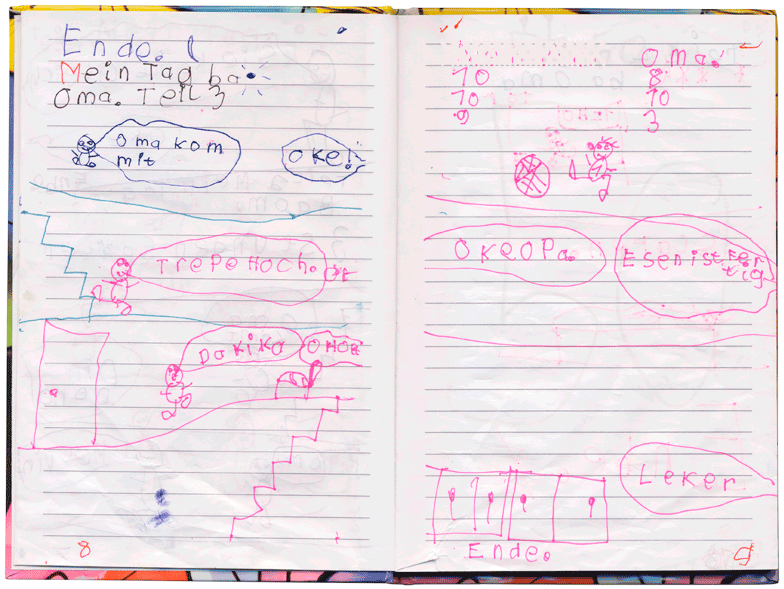 Ende.
Mein Tag ba
Oma. Teil 3
Oma kom
mit
Oke!
Trepe Hoch.
Da Kiko
8
Oma.
10 8
10 10
9 3
OkeOpa.
Esen ist Fer
tig
Leker
Ende.
9